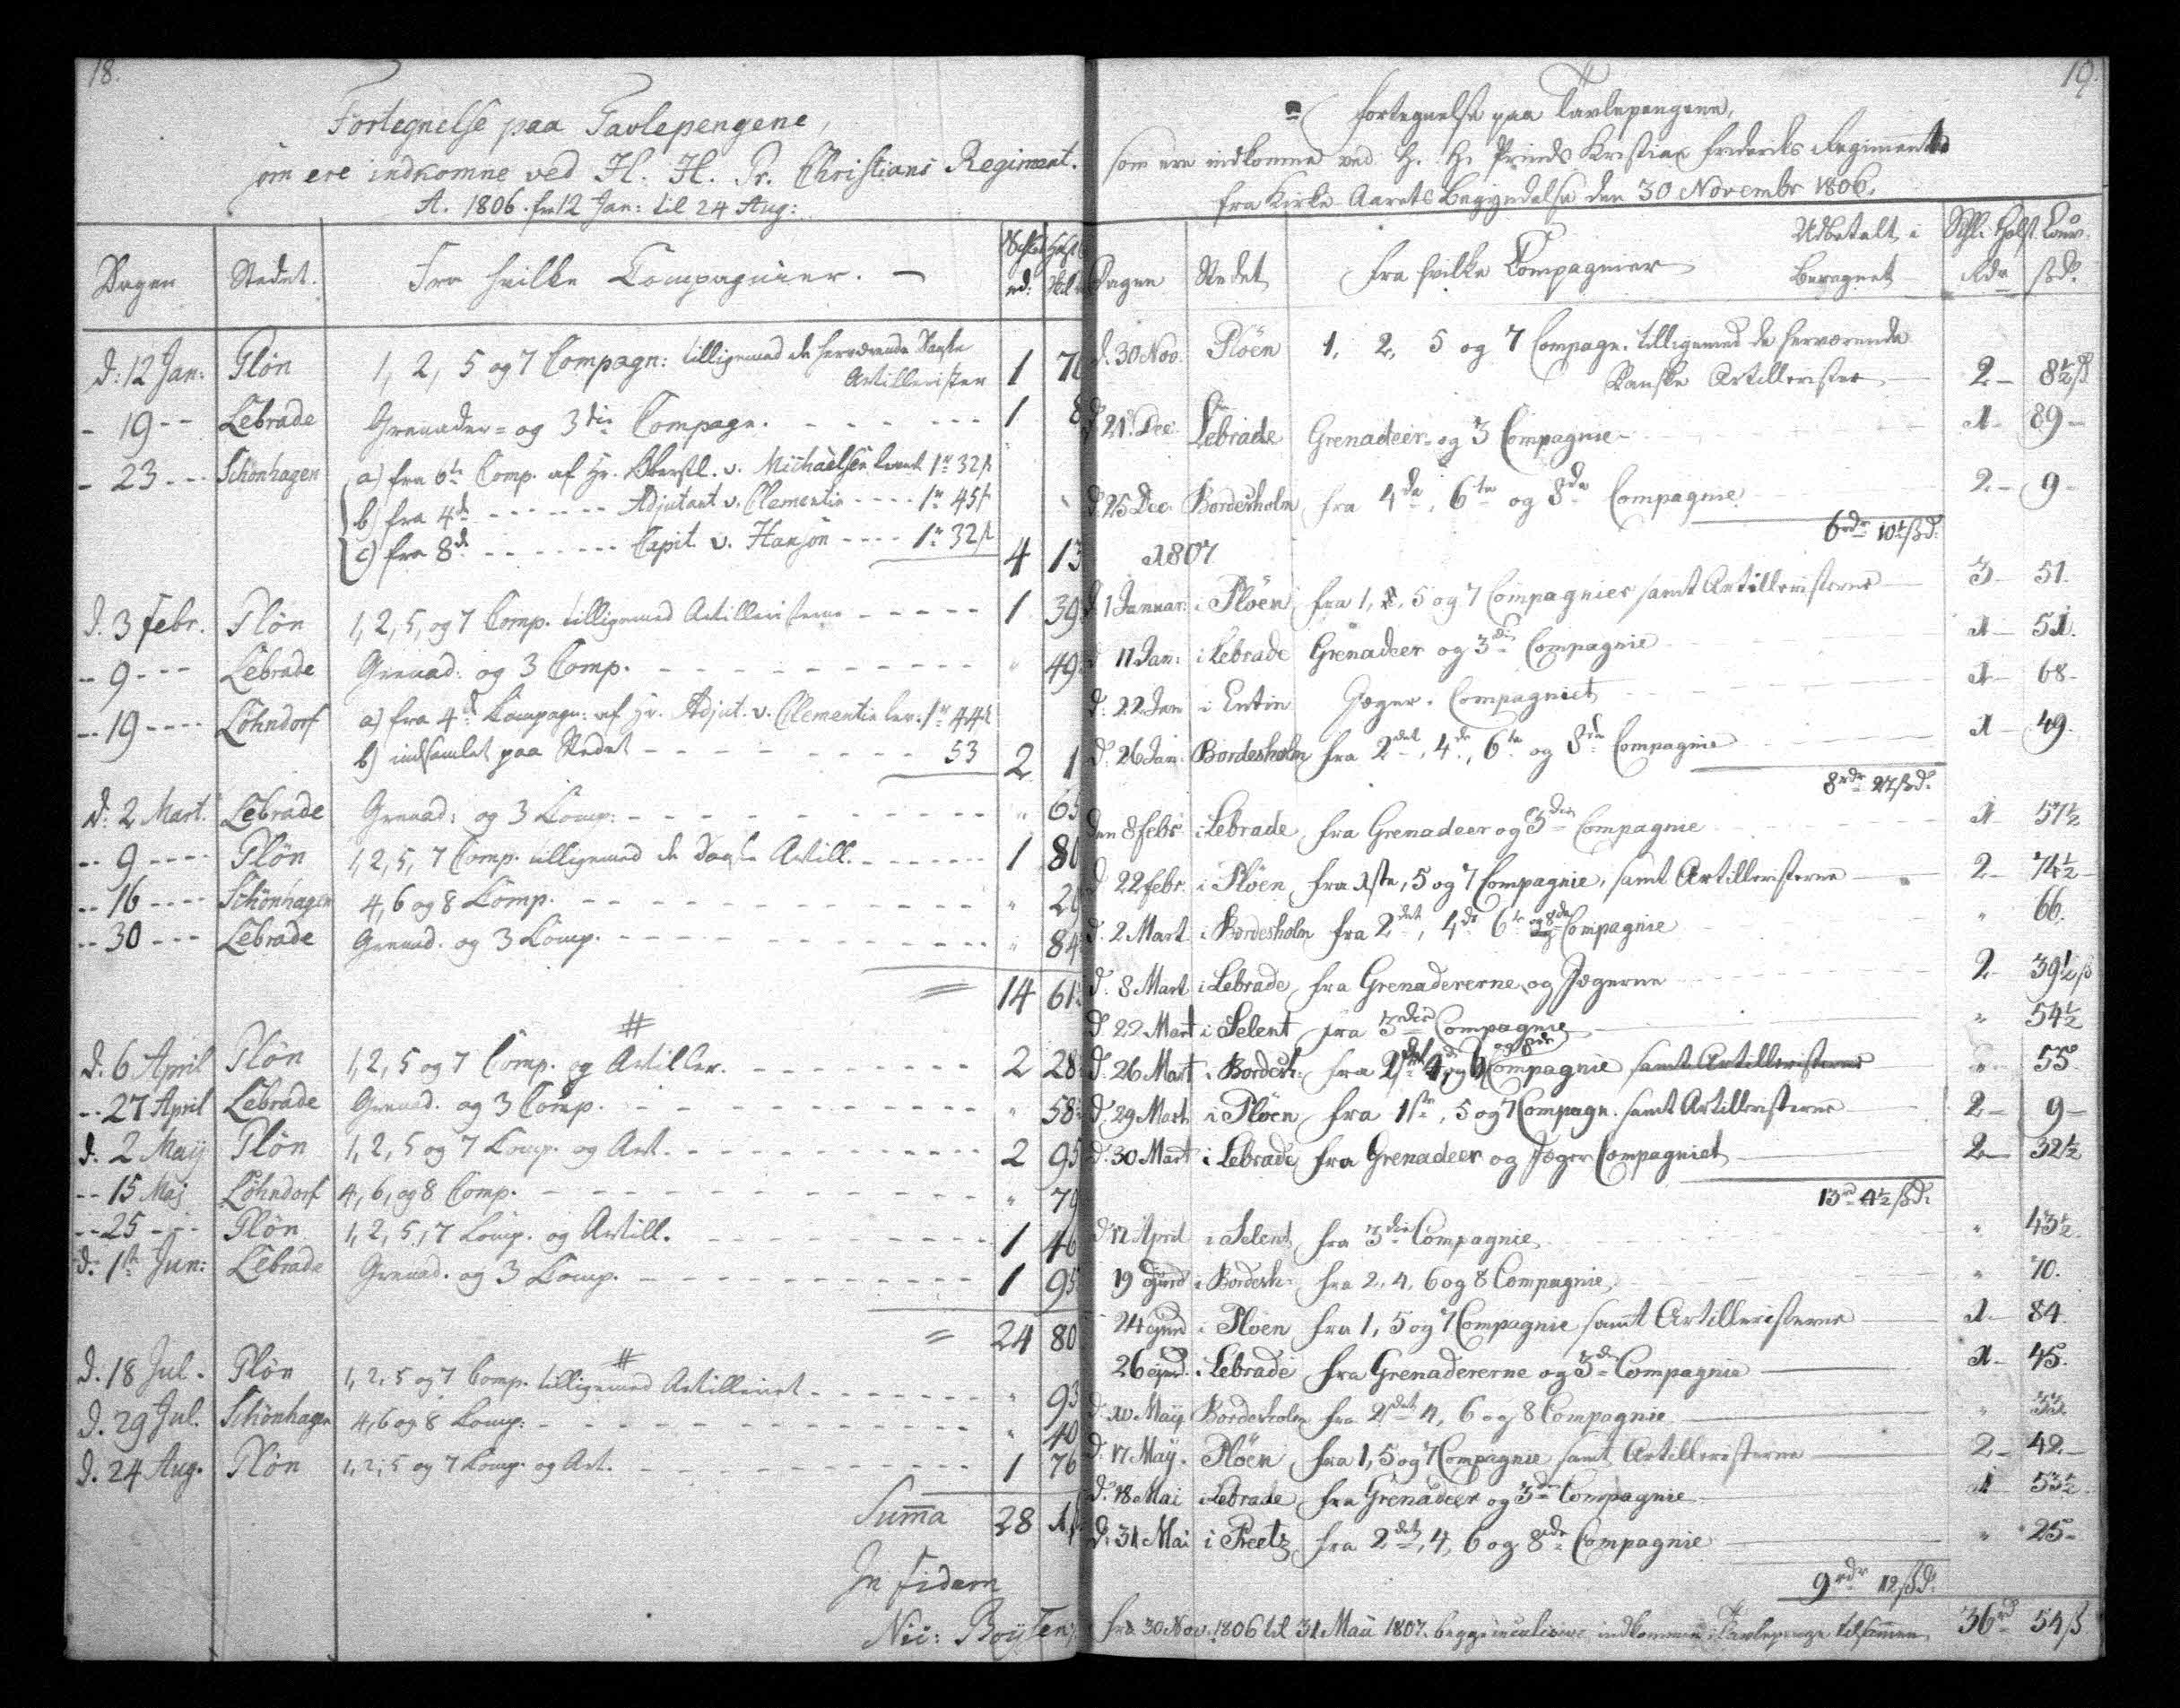 18.
Fortegnelse paa Tavlepengene,
som ere indkomne ved H. H. Pr. Christians Regiment.
A. 1806. fra 12 Jan: til 24 Aug:
Dagen Stedet. Fra hvilke Compagnier. —
d: 12 Jan: Plön 1, 2, 5 og 7 Compagn: tilligemed de herværende Danske
Artillerister 1 76
- 19 -- Lebrade Grenader= og 3die Compagn. 1 8
- 23 --- Schönhagen a) fra 6te Comp. af Hr. Oberstl. v. Michaelsen 1 32ß
b) fra 4de ------ Adjutant v. Clementin ---- 1 45ß
c) fra 8de ------- Capit. v. Hansön ---- 1 32ß
4 13
d. 3 Febr. Plön 1, 2, 5, og 7 Comp. tilligemed Artilleristerne 1 39
-- 9 --- Lebrade Grenad: og 3 Comp. " 49
-- 19 ---- Löhndorf a) fra 4de Compagn: af Hr. Adjut. v. Clementin lev: 1 44ß
b) indsamlet paa Stedet 53
2 1
d: 2 Mart. Lebrade Grenad: og 3 Comp: " 65
-- 9 ---- Plön 1, 2, 5, 7 Comp. tilligemed de Danske Artill. 1 80
-- 16 ---- Schönhagen 4, 6 og 8 Comp. " 29
-- 30 --- Lebrade Grenad. og 3 Comp. " 84
= 14 61
#
d. 6 April Plön 1, 2, 5 og 7 Comp. og Artiller. 2 28
-- 27 April Lebrade Grenad. og 3 Comp. " 58
d. 2 Maij Plön 1, 2, 5 og 7 Comp. og Art. 2 95
-- 15 Maj Löhndorf 4, 6, og 8 Comp. " 79
-- 25 --- Plön 1, 2, 5, 7 Comp. og Artill. 1 46
d. 1ste Jun: Lebrade Grenad. og 3 Comp. 1 95
= 24 80
#
d. 18 Jul. Plön 1, 2, 5 og 7 Comp. tilligemed Artilleriet " 93
d. 29 Jul. Schönhagen 4, 6 og 8 Comp: " 40
d. 24 Aug. Plön 1, 2, 5 og 7 Comp. og Art. 1 76
Summa 28
In fidem
Nic: Boysen
19.
Fortegnelse paa Tavlepengene,
som ere indkomne ved H. H. Prinds Kristian Frederiks Regiment
fra Kirke-Aarets Begyndelse den 30 Novembr 1806.
Dagen Stedet fra hvilke Compagnier Udbetalt i Schl. Holst. Cour.
Beregnet Rdr ßd.
d. 30 Nov. Plöen 1, 2, 5 og 7 Compagn. tilligemed de herværende
Danske Artillerister 2 - 8½ß
d 21. Dec. Lebrade Grenadeer- og 3 Compagnie 1 - 89 -
d. 25 Dec. Bordesholm fra 4de, 6te og 8de Compagnie 2 - 9 -
6rdr 10½ßd.
1807
d. 1 Januar: i Plöen fra 1, 2, 5 og 7 Compagnier samt Artilleristerne 3 - 51.
d 11 Jan: i Lebrade Grenadeer og 3die Compagnie 1 - 51.
d. 22 Jan i Eutin Jæger-Compagniet 1 - 68 -
d. 26 Jan. Bordesholm fra 2det, 4de, 6te og 8de Compagnie 1 - 49.
8rdr 27ßd.
den 8 febr i Lebrade fra Grenadeer og 3die Compagnie 1 - 57½
d 22 febr. i Plöen fra 1ste, 5 og 7 Compagnie, samt Artilleristerne 2 - 74½
d. 2 Mart i Bordesholm fra 2det, 4de 6te og 8de Compagnie " 66.
d. 8 Mart i Lebrade fra Grenadererne og Jægerne 2 - 39½ß
d. 22 Mart i Selent fra 3die Compagnie " 54½
d. 26 Mart i Bordesh: fra 2det 4de, 6 og 8de Compagnie samt Artilleristerne " 55.
d. 29 Mart i Plöen fra 1ste, 5 og 7 Compagn. samt Artilleristerne 2 - 9 -
d. 30 Mart i Lebrade fra Grenadeer og Jæger Compagniet 2 - 32½
13rd 4½ßd.
d. 12 April i Selent fra 3die Compagnie " 43½
19 ejusd i Bordesh: fra 2, 4, 6 og 8 Compagnie " 70.
24 ejusd i Plöen fra 1, 5 og 7 Compagnie samt Artilleristerne 1 - 84
26 ejusd. i Lebrade fra Grenadererne og 3de Compagnie 1 - 45.
d. 10 Maij Bordesholm fra 2det 4, 6 og 8 Compagnie "
d. 17 Maij. Plöen fra 1, 5 og 7 Compagnie samt Artilleristerne 2 - 42 -
d. 18 Mai i Lebrade fra Grenadeer og 3de Compagnie 1 - 53½
d. 31 Mai i Preetz fra 2det, 4, 6 og 8de Compagnie " 25 -
9rdr 12ßd.
fra 30 Nov. 1806 til 31 Maii 1807. begge inclusive indkommen i Tavlepenge tilsammen 36rd 54ß